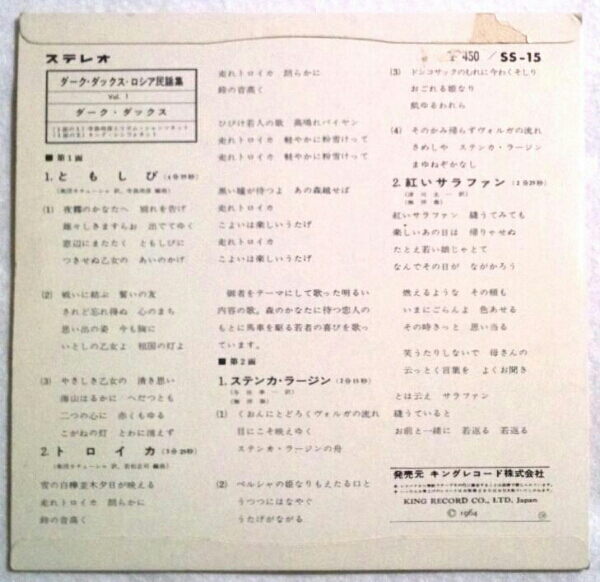 ステレオ
ダーク・ダックス・ロシア民謡集
Vol. 1
ダーク・ダックス
■ 第1面
1. ともしび
(1) 夜霧のかなたへ 別れを告げ
雄々しきますらお 出でてゆく
窓辺にまたたく ともしびに
つきせぬ乙女の あいのかげ
(2) 戦いに結ぶ 誓いの友
されど忘れ得ぬ 心のまち
思い出の姿 今も胸に
いとしの乙女よ 祖国の灯よ
(3) やさしき乙女の 清き思い
海山はるかに へだつとも
二つの心に 赤くもゆる
こがねの灯 とわに消えず
2. トロイカ
雪の白樺並木夕日が映える
走れトロイカ 朗らかに
鈴の音高く
走れトロイカ 朗らかに
鈴の音高く
ひびけ若人の歌 高鳴れバイヤン
走れトロイカ 軽やかに粉雪けって
走れトロイカ 軽やかに粉雪けって
黒い瞳が待つよ あの森越せば
走れトロイカ
こよいは楽しいうたげ
走れトロイカ
こよいは楽しいうたげ
御者をテーマにして歌った明るい
内容の歌。森のかなたに待つ恋人の
もとに馬車を駆る若者の喜びを歌っ
ています。
■ 第2面
1. ステンカ・ラージン
(1) くおんにとどろくヴォルガの流れ
目にこそ映えゆく
ステンカ・ラージンの舟
(2) ペルシャの姫なりもえたる口と
うつつにはなやぐ
うたげがながる
450 / SS-15
(3) ドンコサックのむれに今わくそしり
おごれる姫なり
飢ゆるわれら
(4) そのかみ帰らずヴォルガの流れ
さめしや ステンカ・ラージン
まゆねぞかなし
2. 紅いサラファン
紅いサラファン 縫うてみても
楽しいあの日は 帰りゃせぬ
たとえ若い娘じゃとて
なんでその日が ながかろう
燃えるような その頬も
いまにごらんよ 色あせる
その時きっと 思い当る
笑うたりしないで 母さんの
云っとく言葉を よくお聞き
とは云え サラファン
縫うていると
お前と一緒に 若返る 若返る
発売元 キングレコード株式会社
KING RECORD CO., LTD. Japan
Ⓒ 1964